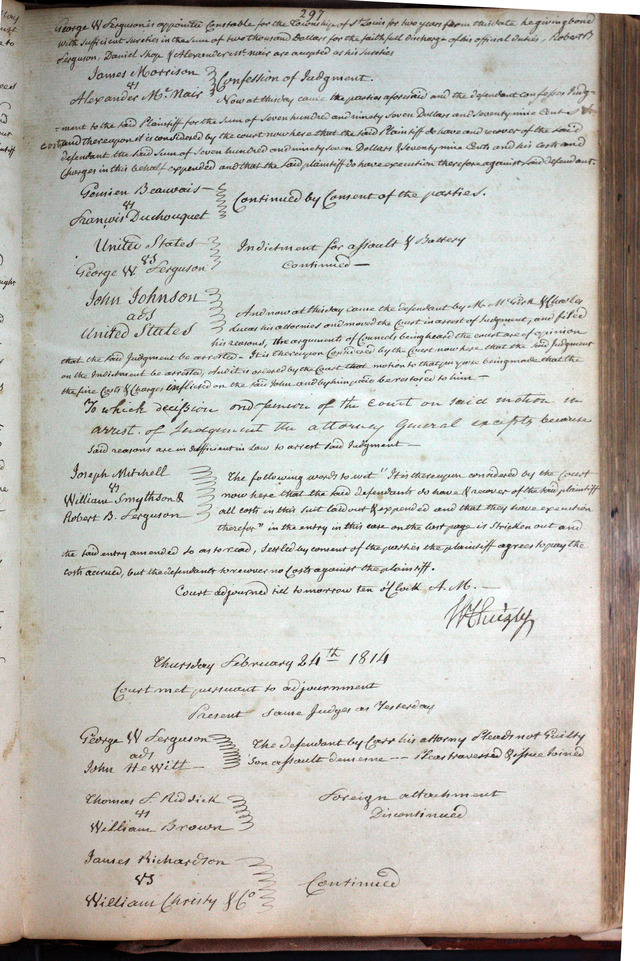 297
George W Ferguson is appointed Constable for the Township of St Louis for two years from this date he giving bond
with sufficient Sureties in the sum of two thousand Dollars for the faithfull Discharge of his official Duties, Robert B
Ferguson, Daniel Shope & Alexander Mc.nair are accepted as his Sureties
James Morrison
vs
Alexander Mc Nair
Confession of Judgment.
Now at this day came the parties aforesaid and the defendant confesses Judg-
ment to the said Plaintiff for the Sum of Seven hundred and ninety seven Dollars and Seventy nine Cents &
costs
and thereupon it is considered by the court now here that the said Plaintiff do have and recover of the said
defendant the said Sum of Seven hundred and ninety seven Dollars & Seventy nine Cents and his costs and
Charges in this behalf expended and that the said plaintiff do have execution therefore against said defendant.
Gemien Beauvais
vs
François Duchouquet
Continued by Consent of the parties.
United States
vs
George W Ferguson
Indictment for assault & Battery
Continued
John Johnson
ads
United States
And now at this day came the defendant by M. McGirk & Charles
Lucas his attornies and moved the Court in arrest of Judgment, and filed
his reasons, the argument of Councel being heard the court are of opinion
that the said Judgment be arrested - It is thereupon considered by the Court now here that the said Judgment
on the Indictment be arrested, And it is ordered by the Court that motion to that purpose being made that the
the fine Costs & Charges inflicted on the said John and by him paid be restored to him
To which decission and opinion of the Court on said motion in
arrest of Judgement the attorney General excepts because
said reasons are insufficient in law to arrest said Judgment
Joseph Mitchell
vs
William Smythson &
Robert B. Ferguson
The following words to wit "It is thereupon considered by the Court
now here that the said defendants do have & recover of the said plaintiff
all costs in this suit laid out & expended and that they have execution
therefor" in the entry in this case on the last page is Stricken out and
the said entry amended so as to read, Settled by consent of the parties the plaintiff agrees to pay the
costs accrued, but the defendants to recover no Costs against the plaintiff.
Court adjourned till to morrow ten oClock A.M.
Thursday February 24th 1814
Court met pursuant to adjournment
Present same Judges as Yesterday
George W Ferguson
ads
John Hewitt
The defendant by Carr his attorny Pleads not Guilty
Son assault demesne -- Pleas traversed & issue Joined
Thomas F. Riddick
vs
William Brown
Foreign attachment
Discontinued
James Richardson
vs
William Christy & Co
Continued